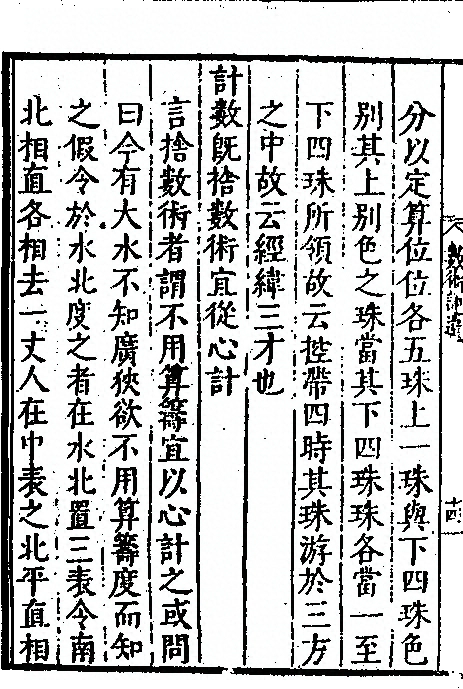 數術記遺
十四
分以定算位位各五珠上一珠與下四珠色
別其上別色之珠當其下四珠珠各當一至
下四珠所領故云控帶四時其珠游於三方
之中故云經緯三才也
計數既捨數術宜從心計
言捨數術者謂不用算籌宜以心計之或問
曰今有大水不知廣狹欲不用算籌度而知
之假令於水北度之者在水北置三表令南
北相直各相去一丈人在中表之北平直相